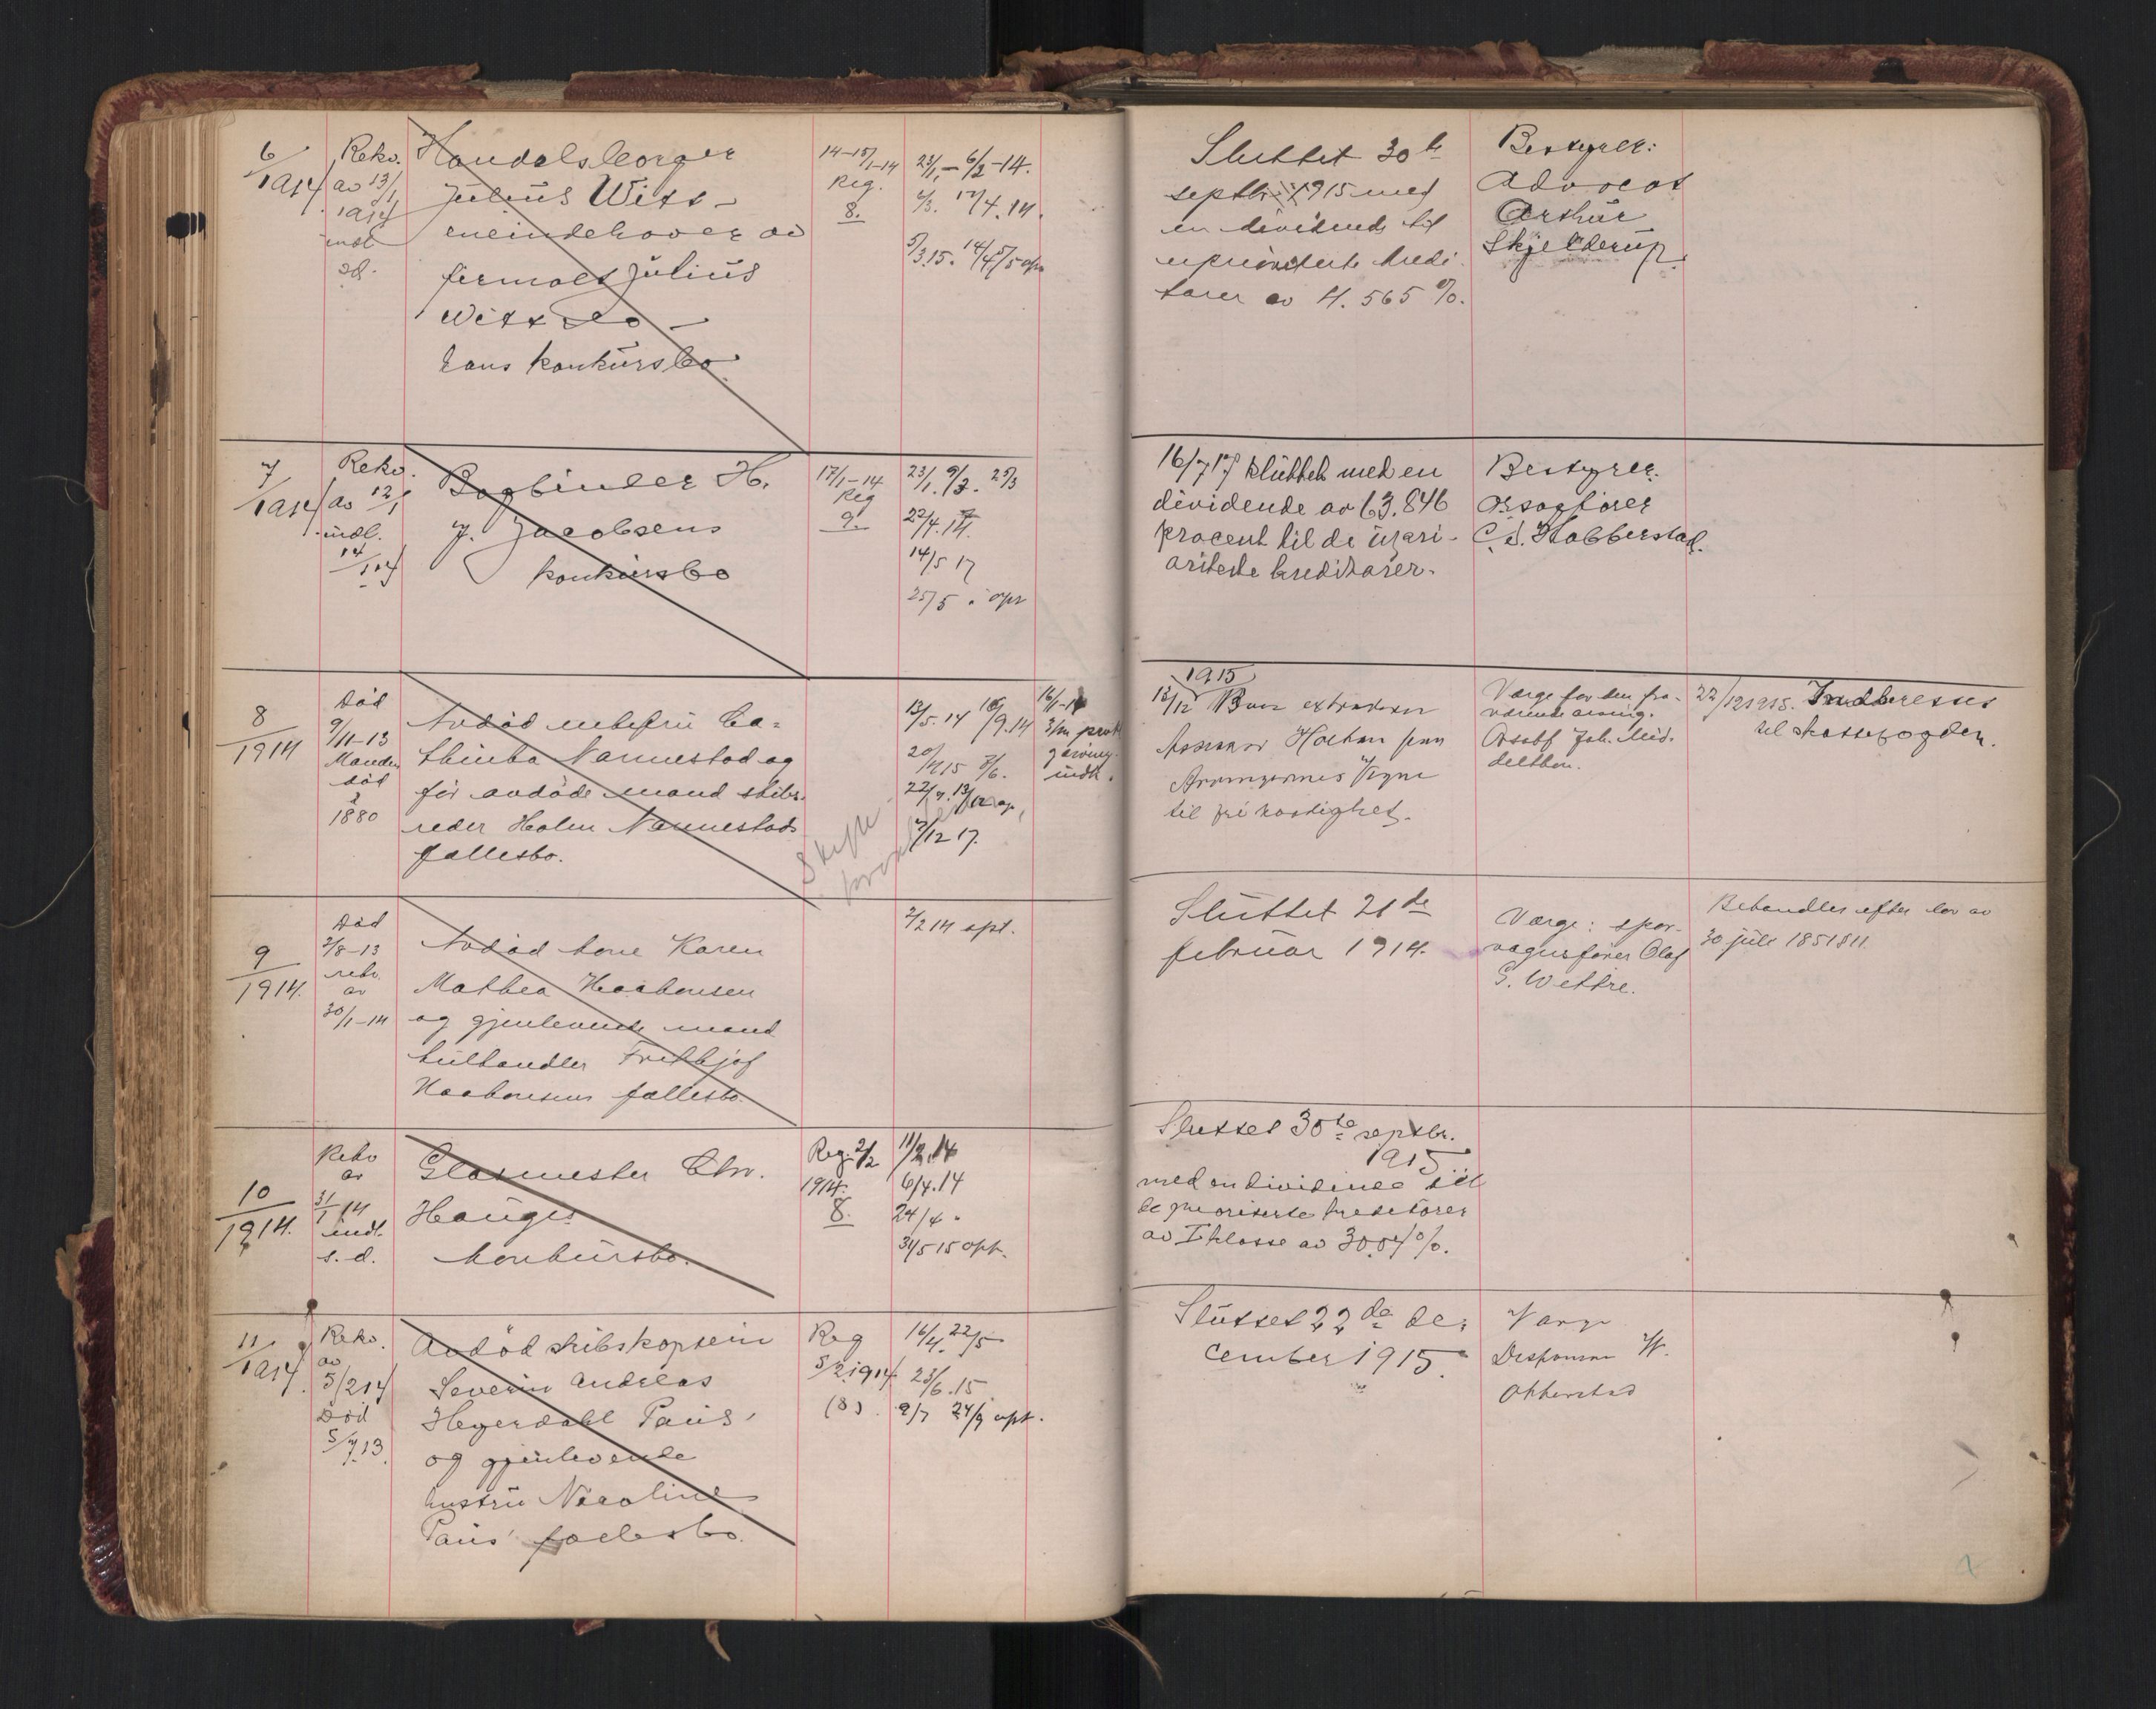 6/1914
Rekv.
av 13/1
1914
indl
s.d.
Handelsborger
Julius Witt -
eneindehaver av
firmaet Julius
Witt & Co -
hans konkursbo.
14-15/1-14
Reg.
8.
23/1 - 6/2-14.
4/3. 17/4.14.
5/3.15. 14/4 5/5 opr
Sluttet 30te
septbr. 1915 med
en dividende til
uprioriterte kredi-
torer av 4.565 %.
Bestyrer:
Advocat
Arthur
Skjelderup.
7/1914
Rekv.
av 12/1
indl.
14/1 14
Bogbinder H.
J. Jacobsens
konkursbo
17/1-14
Reg
9.
23/1. 9/3. 25/3
22/4.14.
14/5 17
25/5 . opr
16/7 17 sluttet med en
dividende av 63.846
procent til de upri-
oriterte kreditorer.
Bestyrer:
Orsagfører
C. J. Hobberstad.
8/1914
Død
9/11-13
Manden
død
1880
Avdød enkefru Ca-
thinka Nannestad og
før avdøde mand skibs-
reder Holm Nannestads
fællesbo.
13/5.14 16/9.14
20/4 15 7/6.
7/12 17.
16/1-14
Skifte
1915
13/12 Boet extraderes
Assessor Holtan paa
Arvingernes Vegne
til fri raadighet.
Værge for den fra-
værende arving.
Orsagf Joh. Mid-
delthon.
22/12 1915. Indberettes
til skattefogden.
9/1914.
Død
2/8-13
rekv.
av
30/1-14
Avdød kone Karen
Mathea Haakonsen
og gjenlevende mand
kulhandler Frithjof
Haakonsens fællesbo.
2/2 14 opt.
Sluttet 21de
februar 1914.
Værge: spor-
vagnsfører Olaf
G. Wettre.
Behandles efter lov av
30 juli 1851 §11.
10/1914.
Rekv
av
31/1 14
indl.
s. d.
Glasmester Chr.
Hauges
konkursbo.
Reg. 2/2
1914.
8.
11/2.14
6/4.14
24/4 .
31/5 15 opt.
Sluttet 30te septbr.
1915
med en dividende til
de prioriterte kreditorer
av I klasse av 30.04 %.
11/1914.
Rekv.
av
5/2 14
Død
5/7.13.
Avdød skibskaptein
Severin Andreas
Heyerdahl Paus'
og gjenlevende
hustru Nicoline
Paus' fællesbo.
Reg
5/2 1914
(8).
16/4. 22/5
23/6.15
9/7 24/9 opt.
Sluttet 22de de-
cember 1915.
Værge
Disponent W.